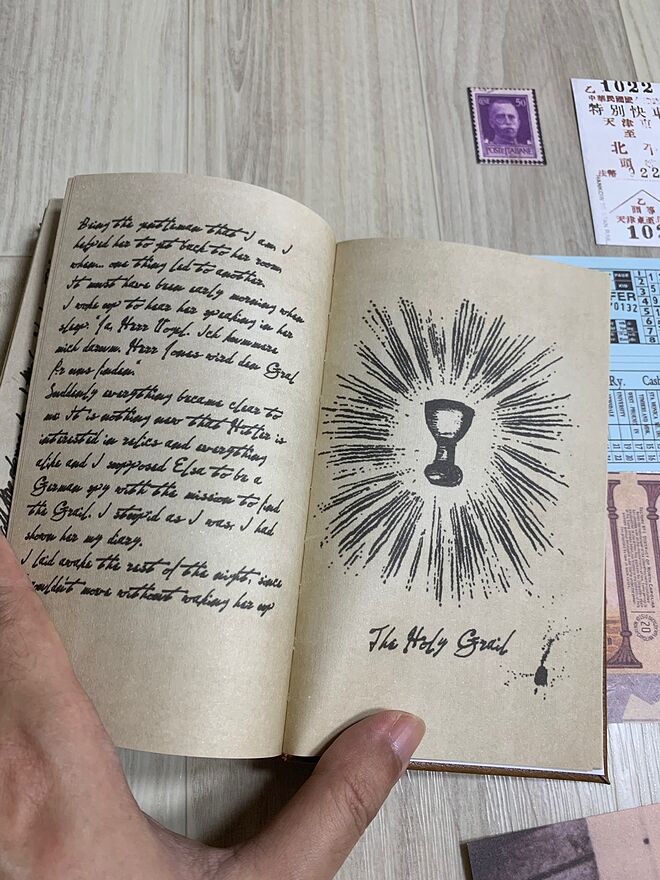 Being the gentleman that I am, I
helped her to get back to her room
when one thing led to another.
It must have been early morning when
I woke up to hear her speaking in her
sleep. "Ja, Herr Vogel. Ich kummere
mich darum. Herr Jones wird den Gral
fur uns finden."
Suddenly everything became clear to
me. It is nothing new that Hitler is
interested in relics and everything
alike and I supposed Elsa to be a
German spy with the mission to find
the Grail. I, stupid as I was, I had
shown her my diary.
I laid awake the rest of the night, since
couldn't move without waking her up
The Holy Grail
50
POSTE ITALIANE
乙 1022
中華民國
特別快
天津東
至
北
頭
922
乙
頭等
天津東至
102
PAGE
FER
0132
Ry.
Cash
20